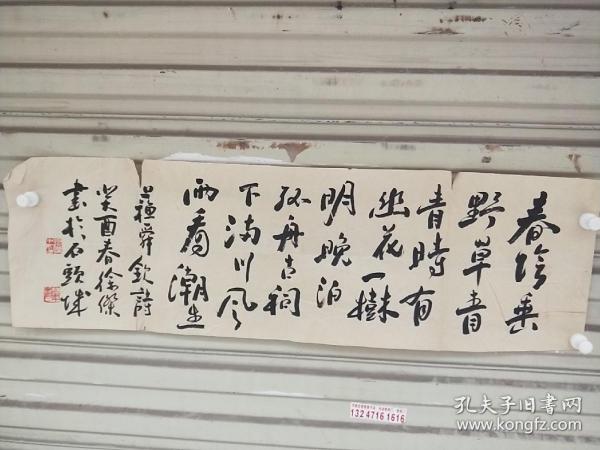 春阴垂
野草青
青時有
幽花一樹
明晚泊
孤舟古祠
下满川风
雨看潮生
蘇舜欽詩
癸酉春徐傑
書於石頭城
13247161616
孔夫子旧书网
www.kongfz.com